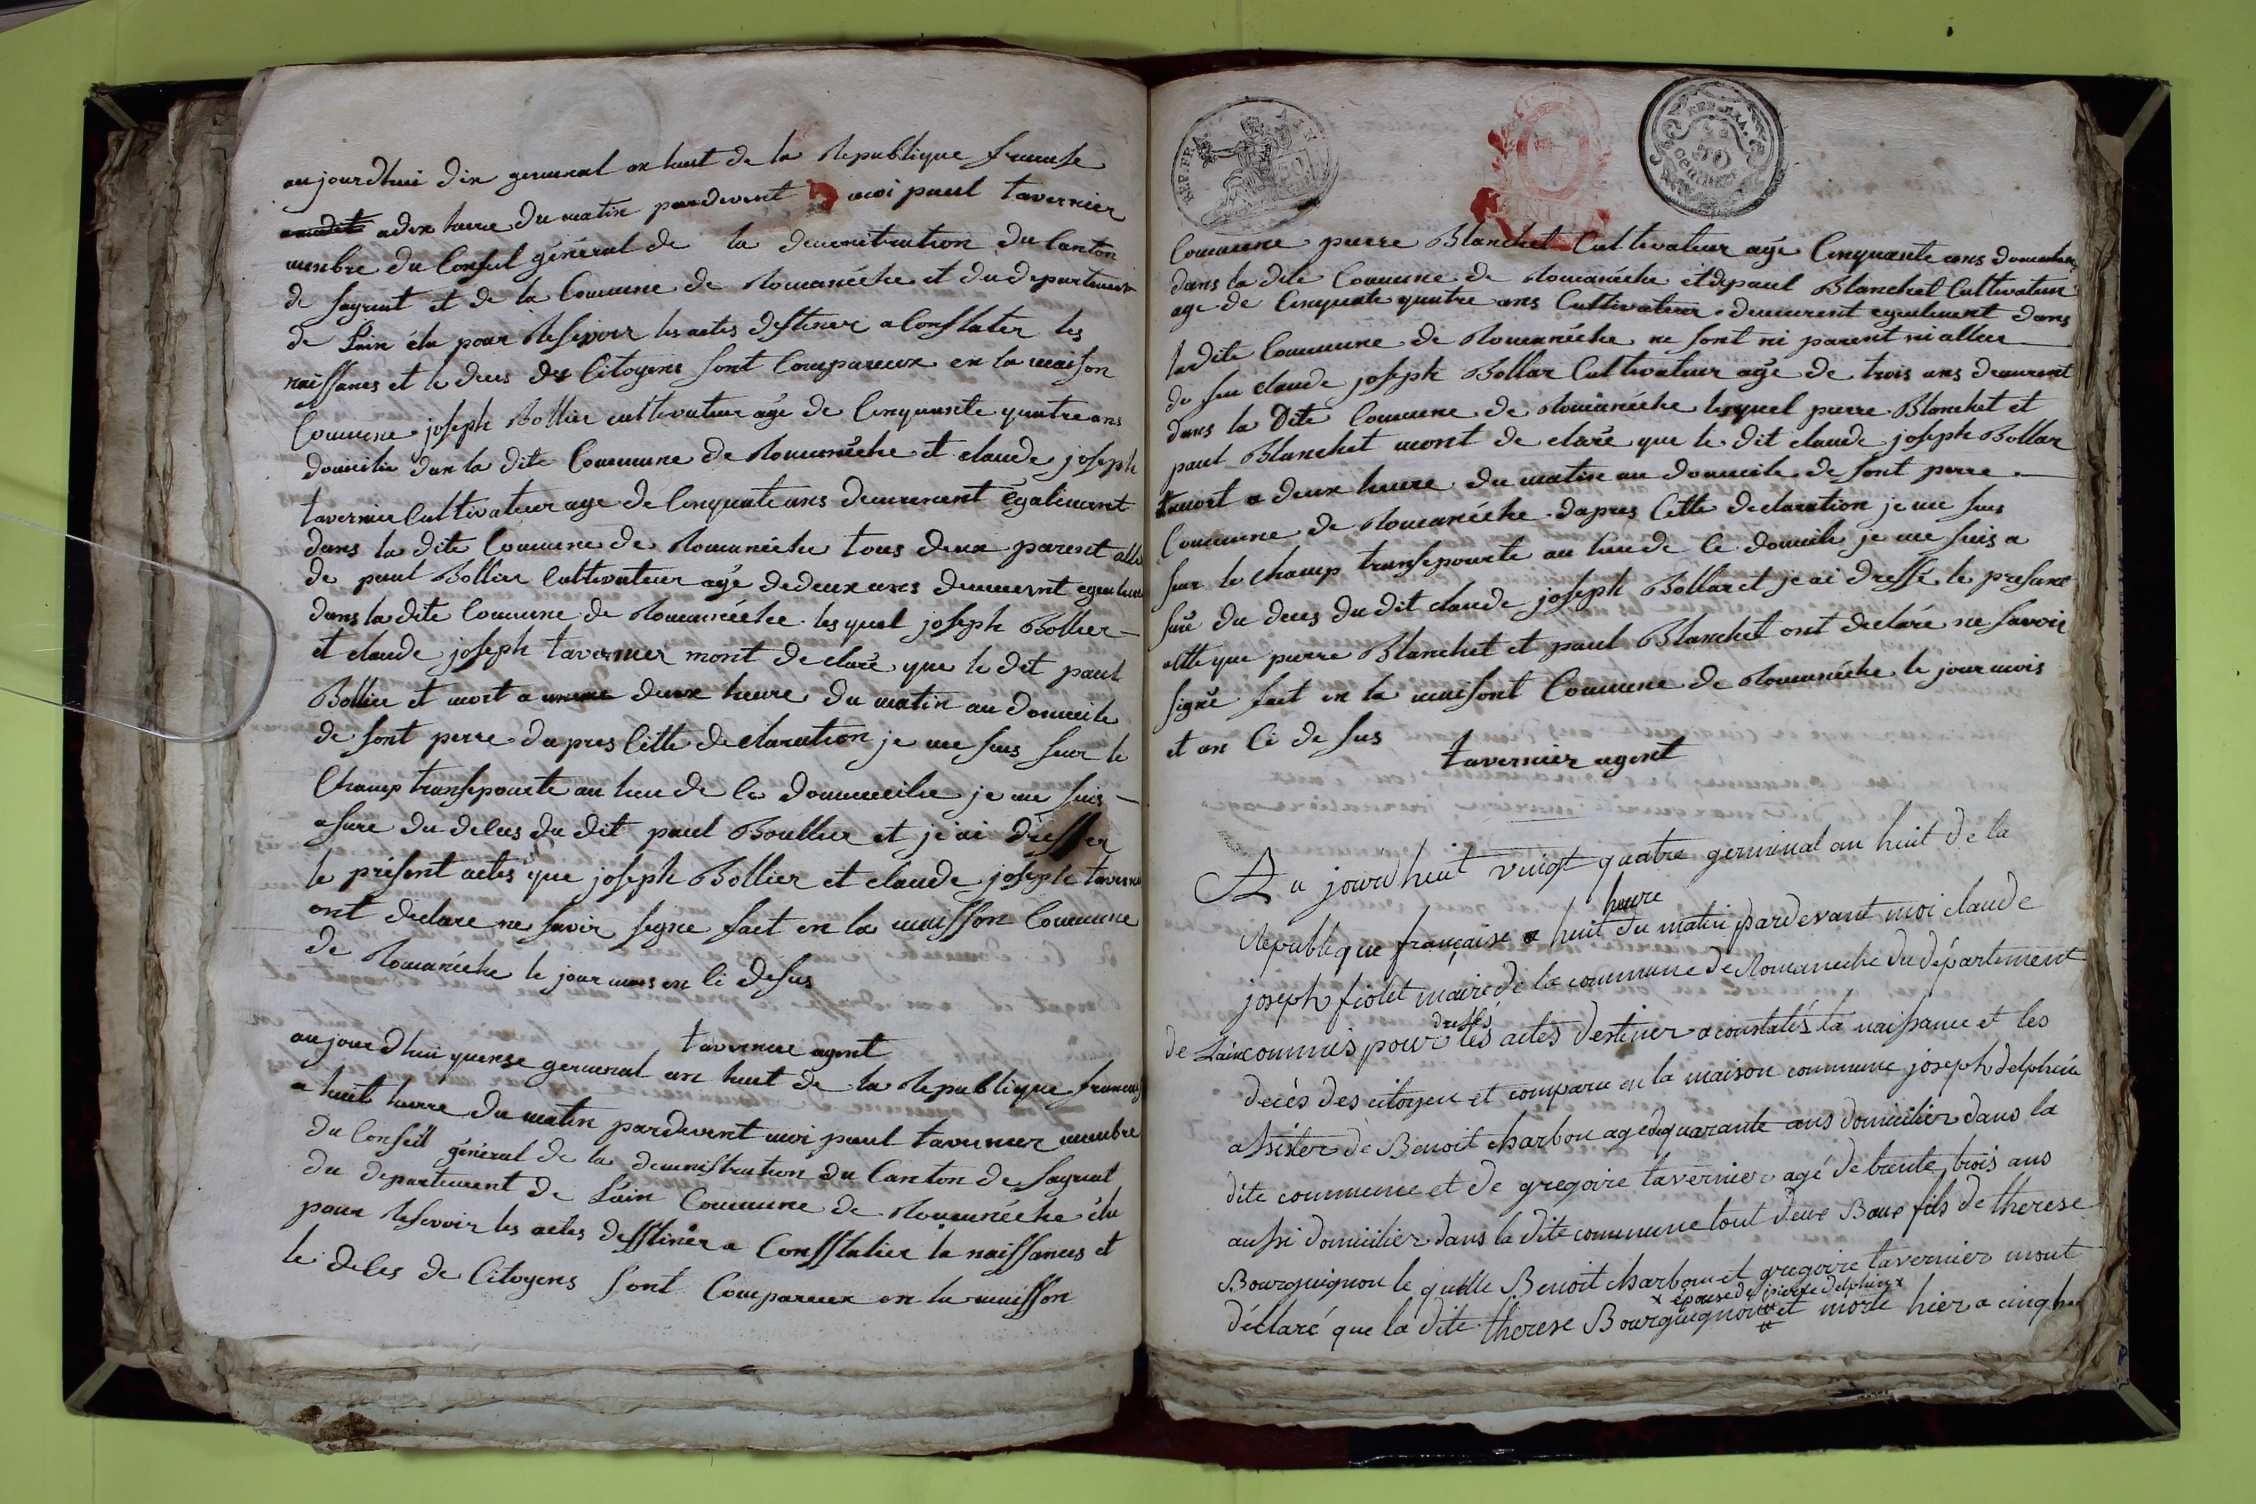 aujourdhui dix germinal an huit de la Republique francoise
a dix heure du matin pardevent moi paul tavernier
menbre du Conseil général de la deministration du Canton
de Seyriat et de la Comune de Romanéche et du departement
de Lain élu pour Resevoir les actes destiner a Constater les
naissances et le deces des Citoyens sont Compareux en la maison
Comune joseph Bollier cultivateur agé de Cinquante quatre ans
domicilié dan la dite Commune de Romanéche et claude joseph
tavernier Cultivateur age de Cinquate ans demeurent également
dans la dite Comune de Romanéche tous deux parent allié
de paul Bollier Cultivateur agé de deux ans demeurent
dans la dite Comune de Romanéche lesquel joseph Bollier
et claude joseph tavernier mont declaré que le dit paul
Bollier et mort a deux heure du matin au domicile
de sont perre dapres Cette declaration je me suis sur le
Champ transepourte au lieu de Ce dommicilie je me suis
asure du deces du dit paul Boullier et je ai dresser
le présent actes que joseph Bollier et claude joseph taverni
ont declare ne savoir signe fait en la maisson Commune
de Romanéche le jour mois en Ci desus
tavernier agent
aujourdhui quense germinal an huit de la Republique francois
a huit heurre du matin pardevent moi paul tavernier menbre
du Conseill général de la deministration du Canton de Seyriat
du departement de Lain Commune de Romanéche élu
pour Resevoir les actes desstiner a Consstatier la naissances et
le deces de Citoyens sont Compareux en la maisson
REP. FRA.
50
REP. FRA.
50
CENTIMES
Comune pierre Blanchet Cultivateur agé Cinquante ans
dans la dite Comune de Romanéche et de paul Blanchet Cultivateur
age de Cinquate quatre ans Cultivateur demeurent egalement dans
ladite Commune de Romanéche ne sont ni parent ni allier
du feu claude joseph Bollar Cultivateur agé de trois ans demeurent
dans la Dite Comune de Romanéche lesquel pierre Blanchet et
paul Blanchet mont de claré que le dit claude joseph Bollar
et mort a deux heure du matin au domicile de sont perre
Commune de Romanéche dapres Cette declaration je me suis
sur le champ transepourte au lieu de Ce domicile je me suis a
suré du deces du dit claude joseph Bollar et je ai dressé le present
actte que pierre Blanchet et paul Blanchet ont declaré ne savoir
signé fait en la maisont Comune de Romanéche le jour mois
et an Ci de sus
tavernier agent
Au jourdhuit vingt quatre germinal an huit de la
heure
République française a huit du matin pardevant moi claude
joseph fiolet maire de la commune de Romaneche du département
dressés
de Lain commis pour les actes destiner a constatés la naissance et les
decès des citoyen et comparu en la maison commune joseph delphin
assister de Benoit charbon agé de quarante ans domicilier dans la
dite commune et de gregoire tavernier agé de trante trois ans
aussi domicilier dans la dite commune tout deux Baux fils de therese
Bourguignon le quelle Benoit charbon et gregoire tavernier mont
x épouse de pierre delphin x
déclaré que la dite therese Bourguignon et morte hier a cinq